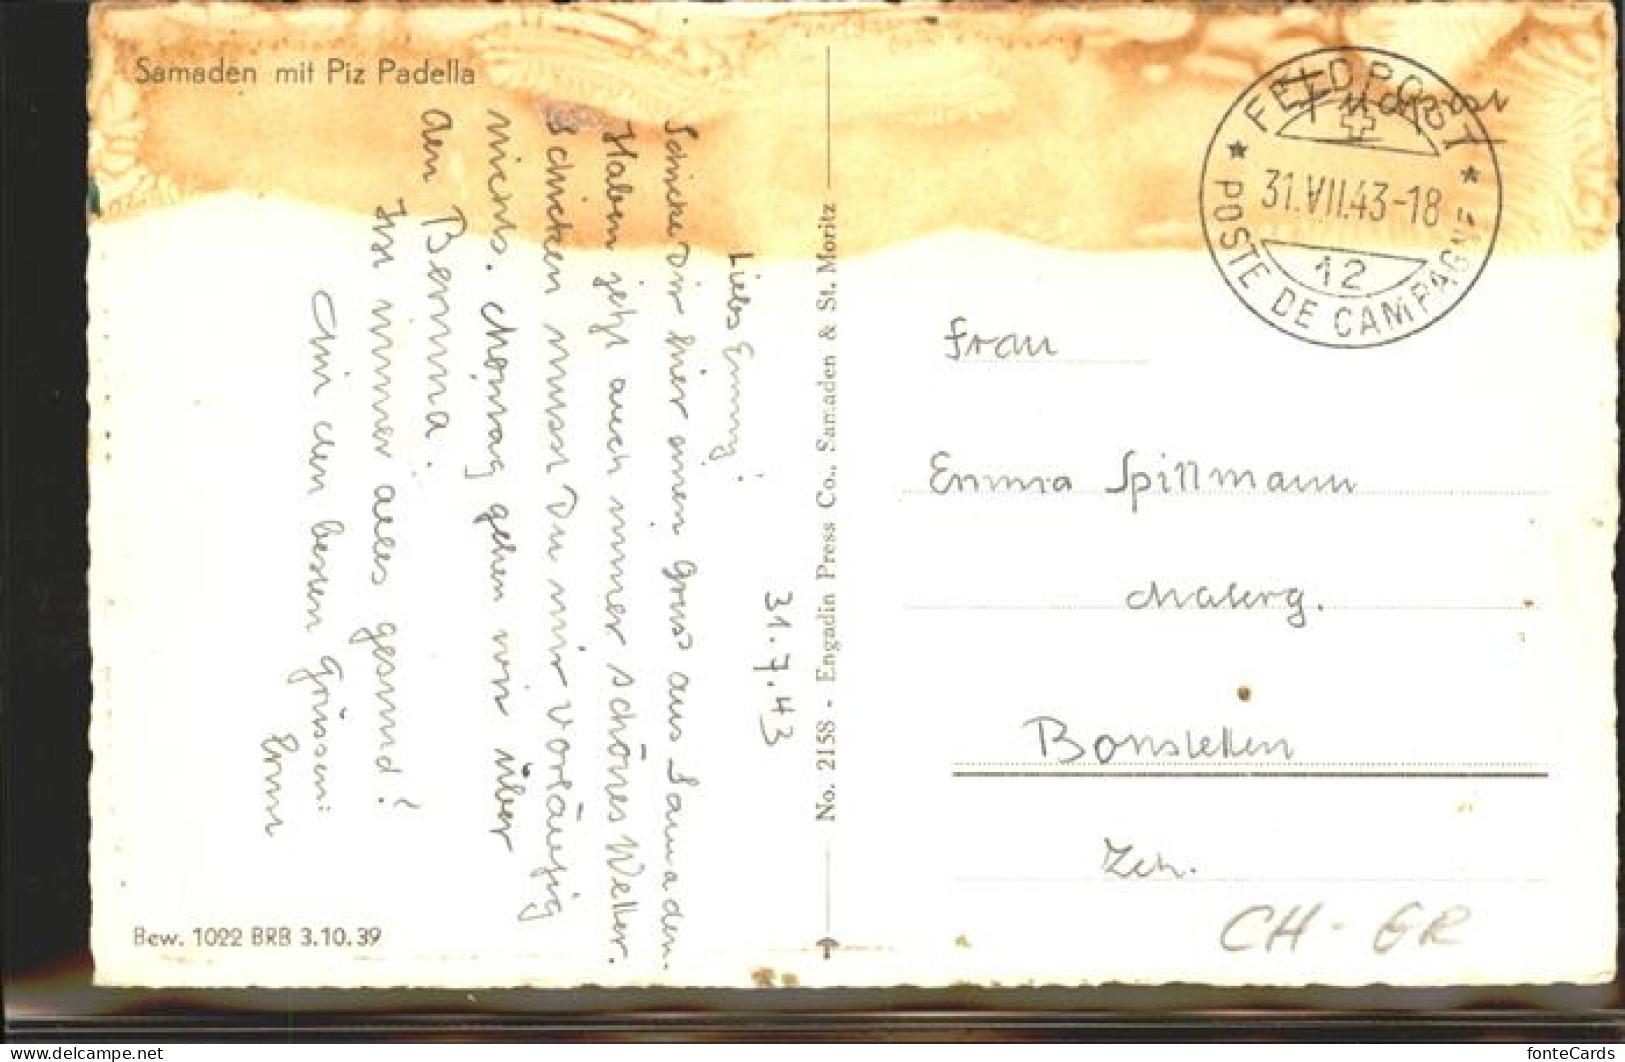 Samaden mit Piz Padella
31.7.43
Liebs Emmy!
Schicke Dir hier einen Gruss aus Samaden.
Haben jetzt auch immer schönes Wetter.
Schicken musst Du mir vorläufig
nichts. Montag gehen wir über
den Bernina.
Ist immer alles gesund?
Mit den besten Grüssen:
No. 2158 - Engadin Press Co., Samaden & St. Moritz
Bew. 1022 BRB 3.10.39
Feldpost
FELDPOST
31.VII.43-18
12
POSTE DE CAMPAGNE
Frau
Emma Spillmann
Malerg.
Bonstetten
Zch.
CH - GR
delcampe.net
fonteCards